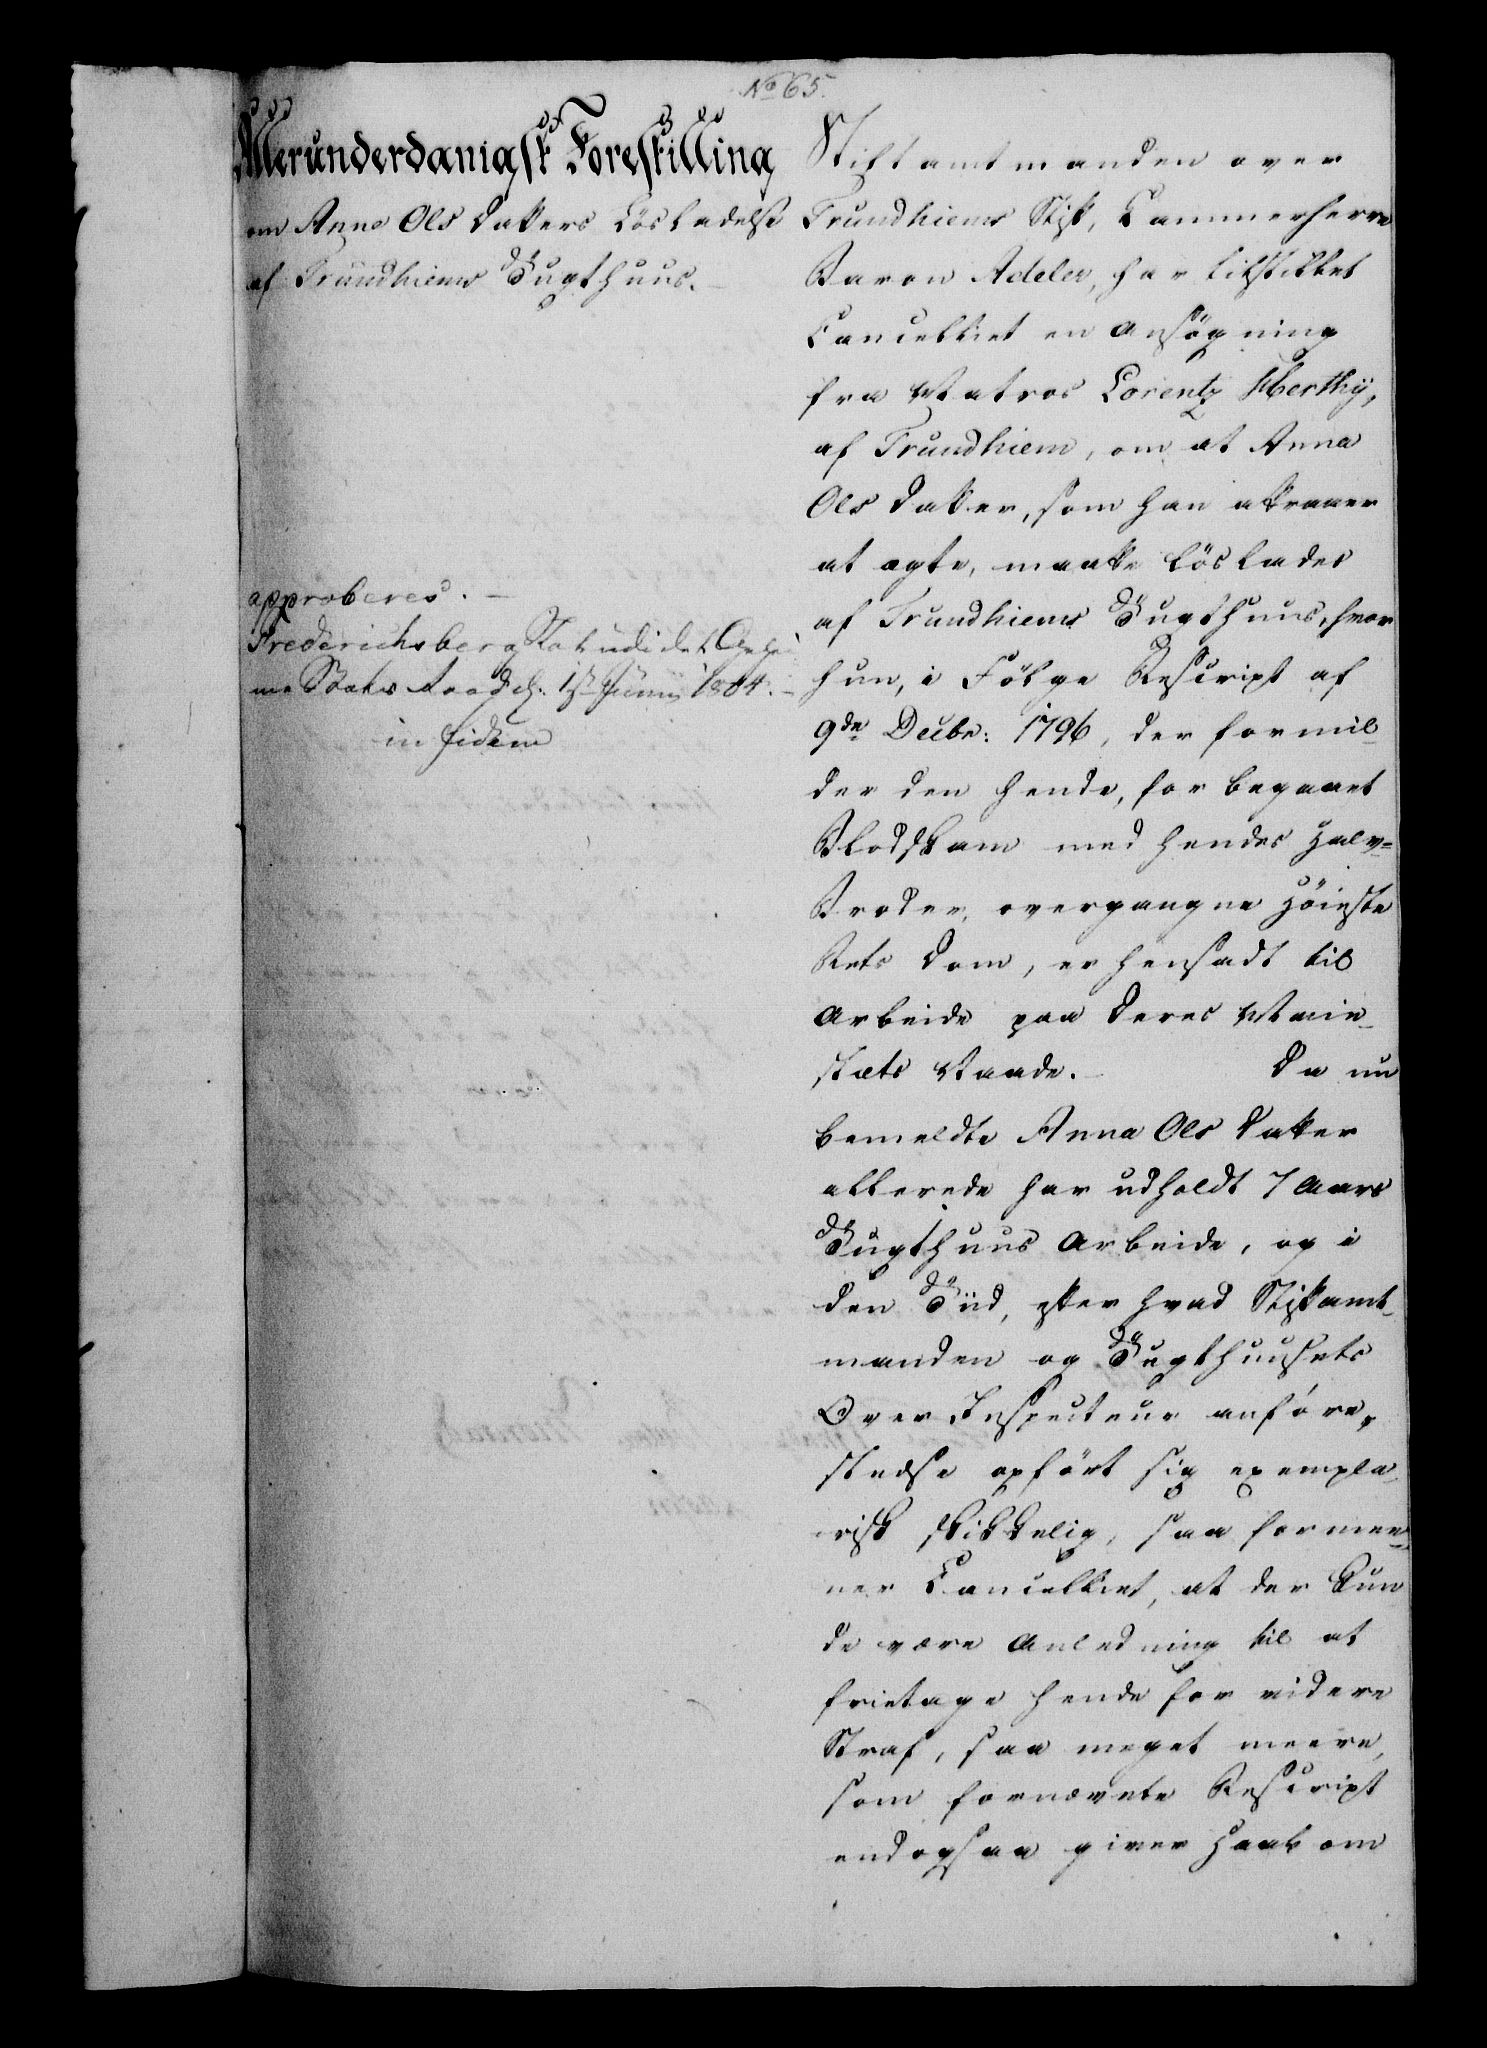 No 65.
Allerunderdanigst Forestilling
om Anna Ols Datters Lösladelse
af Trundhiems Tugthuus.
approberes.
Frederichsberg Slot udi det Geheime
Stats Raad d: 1ste Junii 1804.
in fidem
Stiftamtmanden over
Trundhiems Stift, Cammerherre
Baron Adeler, har tilstillet
Cancelliet en Ansögning
fra Matros Lorentz
af Trundhiem, om at Anna
Ols Datter, som han attraaer
at ægte, maatte löslades
af Trundhiems Tugthuus, hvor
hun, i Fölge Rescript af
9de Decbr: 1796, der formil-
der den hende, for begaaet
Blodskam med hendes Halv-
Broder, overgangne Höieste
Rets Dom, er hensadt til
Arbeide paa Deres Maie-
stæts Naade. Da nu
bemeldte Anna Ols Datter
allerede har udholdt 7 Aars
Tugthuus Arbeide, og i
den Tiid, efter hvad Stiftamt-
manden og Tugthuusets
Over Inspecteur anförer,
stedse opfört sig exempla-
risk skikkelig, saa formee-
ner Cancelliet, at der kun-
de være Anledning til at
fritage hende for videre
Straf, saa meget meere,
som fornævnte Rescript
endogsaa giver Haab om